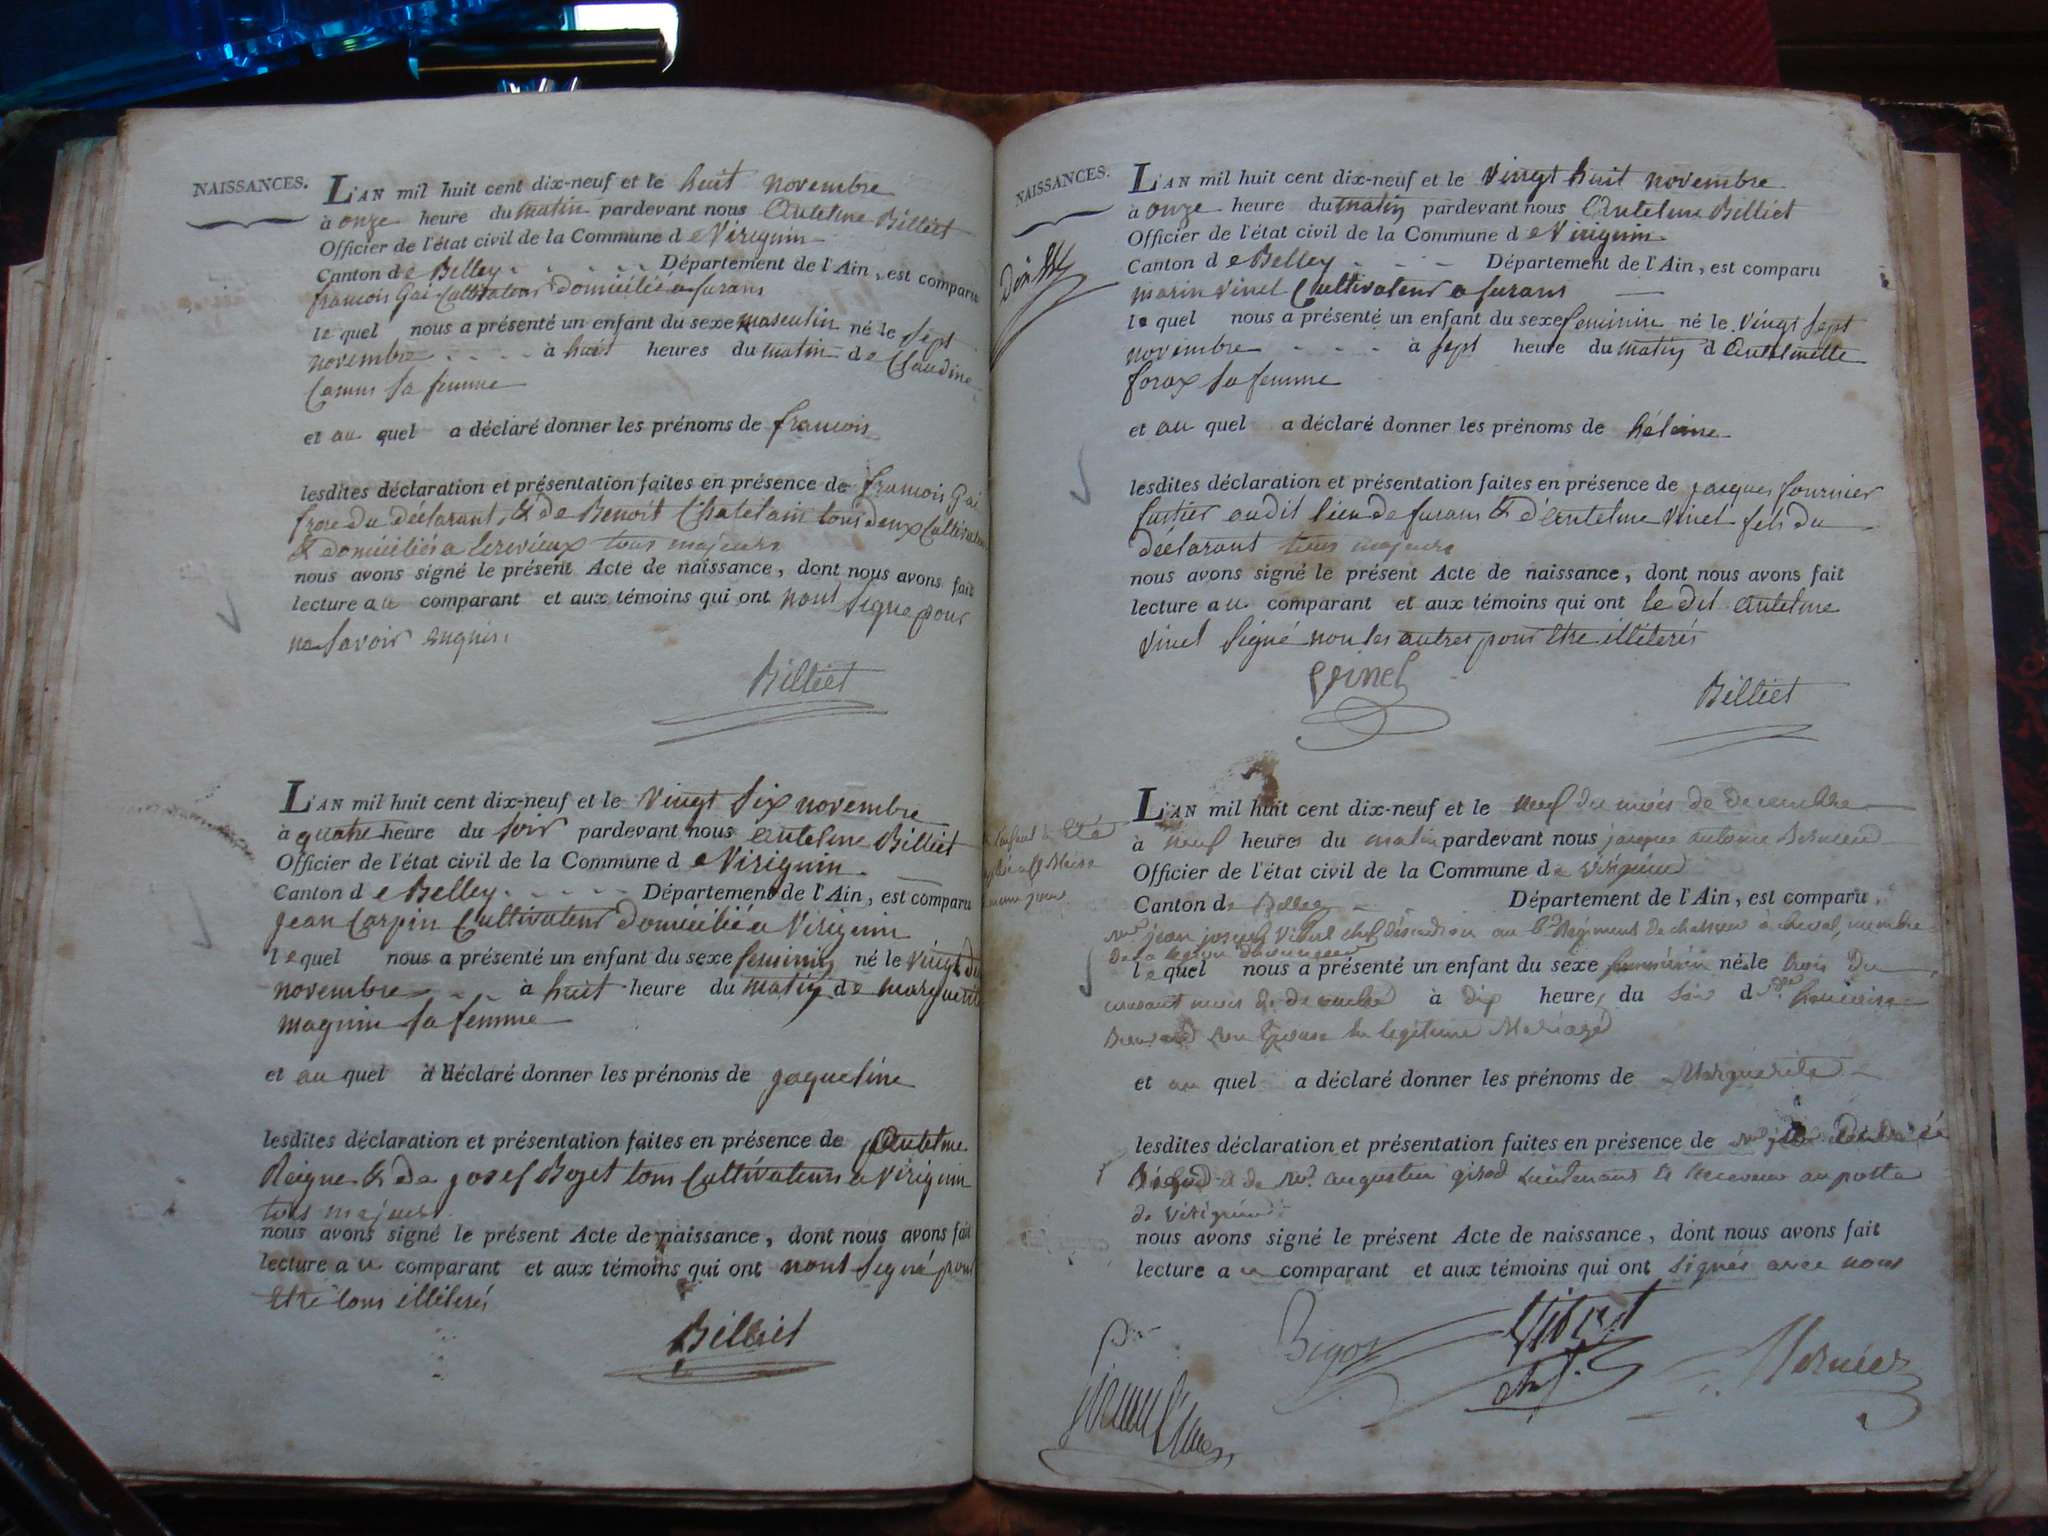 NAISSANCES.
L'AN mil huit cent dix-neuf et le huit novembre
à onze heure du matin pardevant nous Antelme Billiet
Officier de l'état civil de la Commune de Virignin
Canton de Belley Département de l'Ain, est comparu
francois Gai Cultivateur domicilié a furans
lequel nous a présenté un enfant du sexe masculin né le sept
novembre à huit heures du matin de Claudine
Camus sa femme
et au quel a déclaré donner les prénoms de francois
lesdites déclaration et présentation faites en présence de francois Gai
frere du déclarant, & de Benoit Chatelain tous deux Cultivateurs
& domiciliés a tous majeurs
nous avons signé le présent Acte de naissance, dont nous avons fait
lecture au comparant et aux témoins qui ont nont signe pour
ne savoir enquis.
Billiet
L'AN mil huit cent dix-neuf et le vingt six novembre
à quatre heure du soir pardevant nous antelme Billiet
Officier de l'état civil de la Commune de Virignin
Canton de Belley Département de l'Ain, est comparu
jean Carpin Cultivateur domicilié a Virignin
lequel nous a présenté un enfant du sexe feminin né le vingt du
novembre à huit heure du matin de marguerite
magnin sa femme
et au quel a déclaré donner les prénoms de jaqueline
lesdites déclaration et présentation faites en présence de Antelme
Reigne & de josef Bojet tous Cultivateurs a Virignin
tous majeurs
nous avons signé le présent Acte de naissance, dont nous avons fait
lecture au comparant et aux témoins qui ont nont signé pour
etre tous illiterés
Billiet
NAISSANCES.
L'AN mil huit cent dix-neuf et le vingt huit novembre
à onze heure du matin pardevant nous Antelme Billiet
Officier de l'état civil de la Commune de Virignin
Canton de Belley Département de l'Ain, est comparu
marin vinel Cultivateur a furans
lequel nous a présenté un enfant du sexe feminin né le vingt sept
novembre à sept heure du matin d Antelmette
forax sa femme
et au quel a déclaré donner les prénoms de
lesdites déclaration et présentation faites en présence de jacques fournier
audit lieu de furans & d'antelme vinel fils du
déclarant tous majeurs
nous avons signé le présent Acte de naissance, dont nous avons fait
lecture au comparant et aux témoins qui ont le dit antelme
vinel signé non les autres pour etre illiterés
vinel
Billiet
L'AN mil huit cent dix-neuf et le neuf du mois de decembre
à neuf heures du matin pardevant nous jacques antoine
Officier de l'état civil de la Commune de
Canton de Belley Département de l'Ain, est comparu
mr jean joseph Vibert chef d'escadron au Régiment de chasseurs à cheval, membre
de la legion d'honneur
lequel nous a présenté un enfant du sexe feminin né le trois du
courant mois de decembre à dix heures du soir de francoise
son Epouse en legitime Mariage
et au quel a déclaré donner les prénoms de Marguerite
lesdites déclaration et présentation faites en présence de mr
& de mr. augustin girod Lieutenant et receveur au poste
de
nous avons signé le présent Acte de naissance, dont nous avons fait
lecture au comparant et aux témoins qui ont signés avec nous
Bigot
Vibert